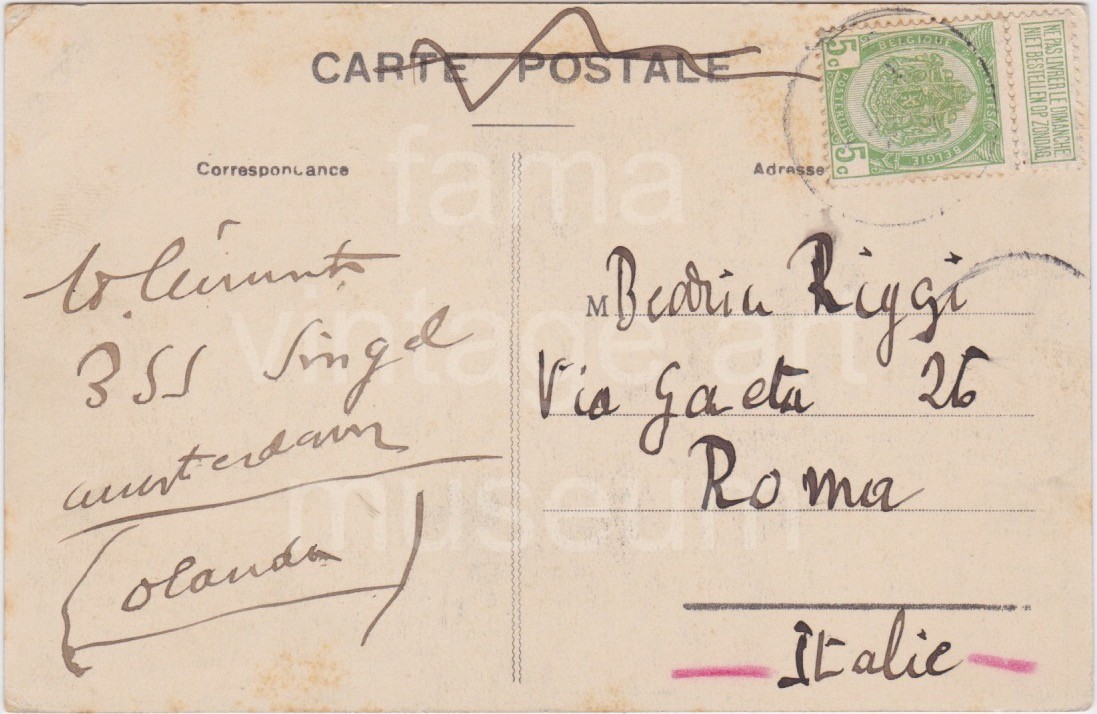 CARTE POSTALE
Correspondance
Adresse
BELGIQUE
POSTES
POSTERIJEN
BELGIE
5c
5c
NE PAS LIVRER LE DIMANCHE
NIET BESTELLEN OP ZONDAG
355 Singel
amsterdam
(olanda)
M Riggi
Via Gaeta 26
Roma
Italie
fama
vintage art
museum